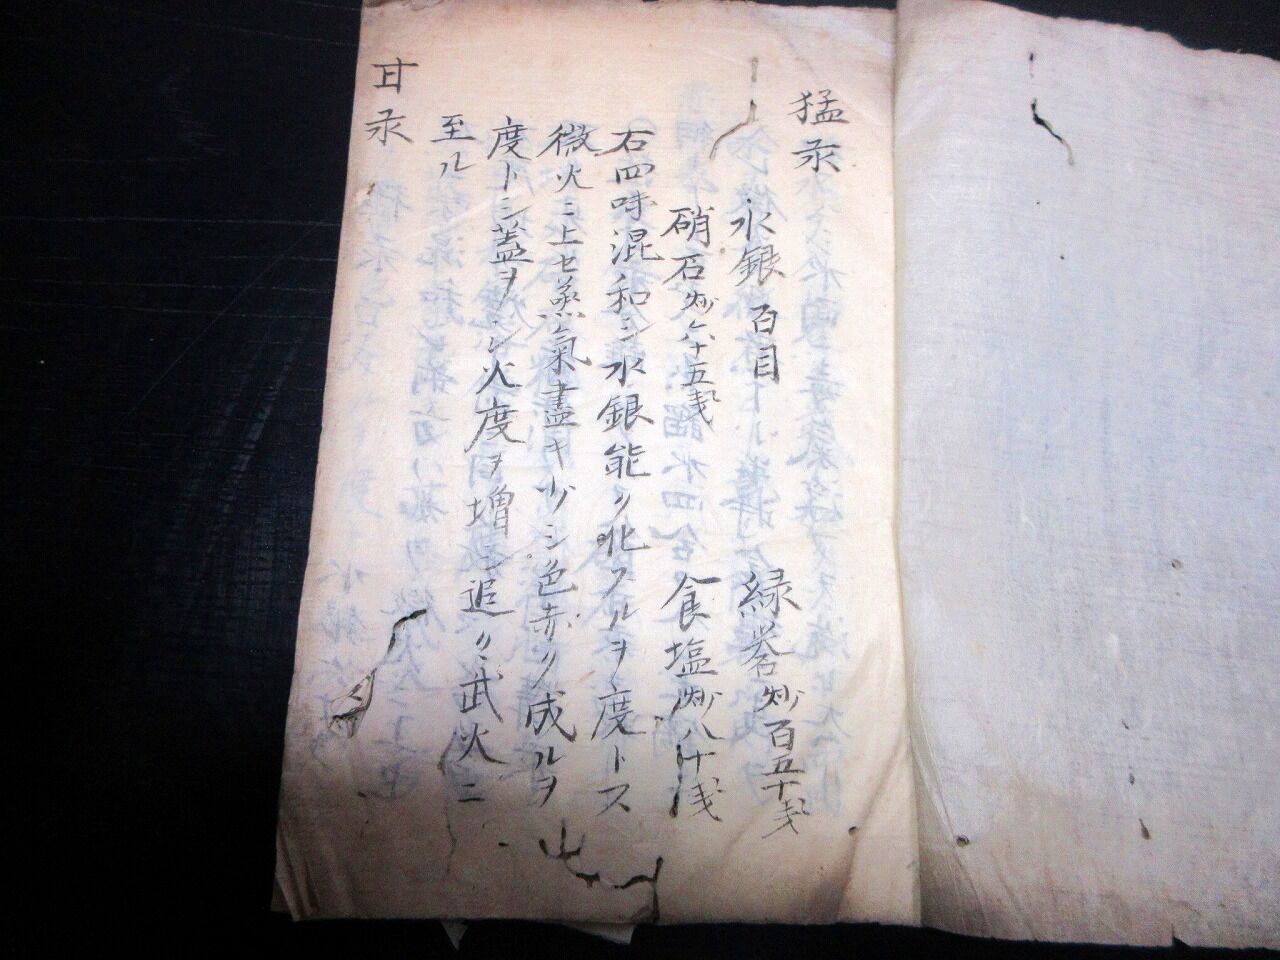 猛汞
水銀 百目 緑礬 炒百五十戔
硝石 炒六十五戔 食塩 炒八十戔
石四味混和シ水銀能ク化スルヲ度トス
微火ニ上セ蒸氣盡キ少シ色赤ク成ルヲ
度トシ蓋ヲシ火度ヲ増シ追々武火ニ
至ル
甘汞